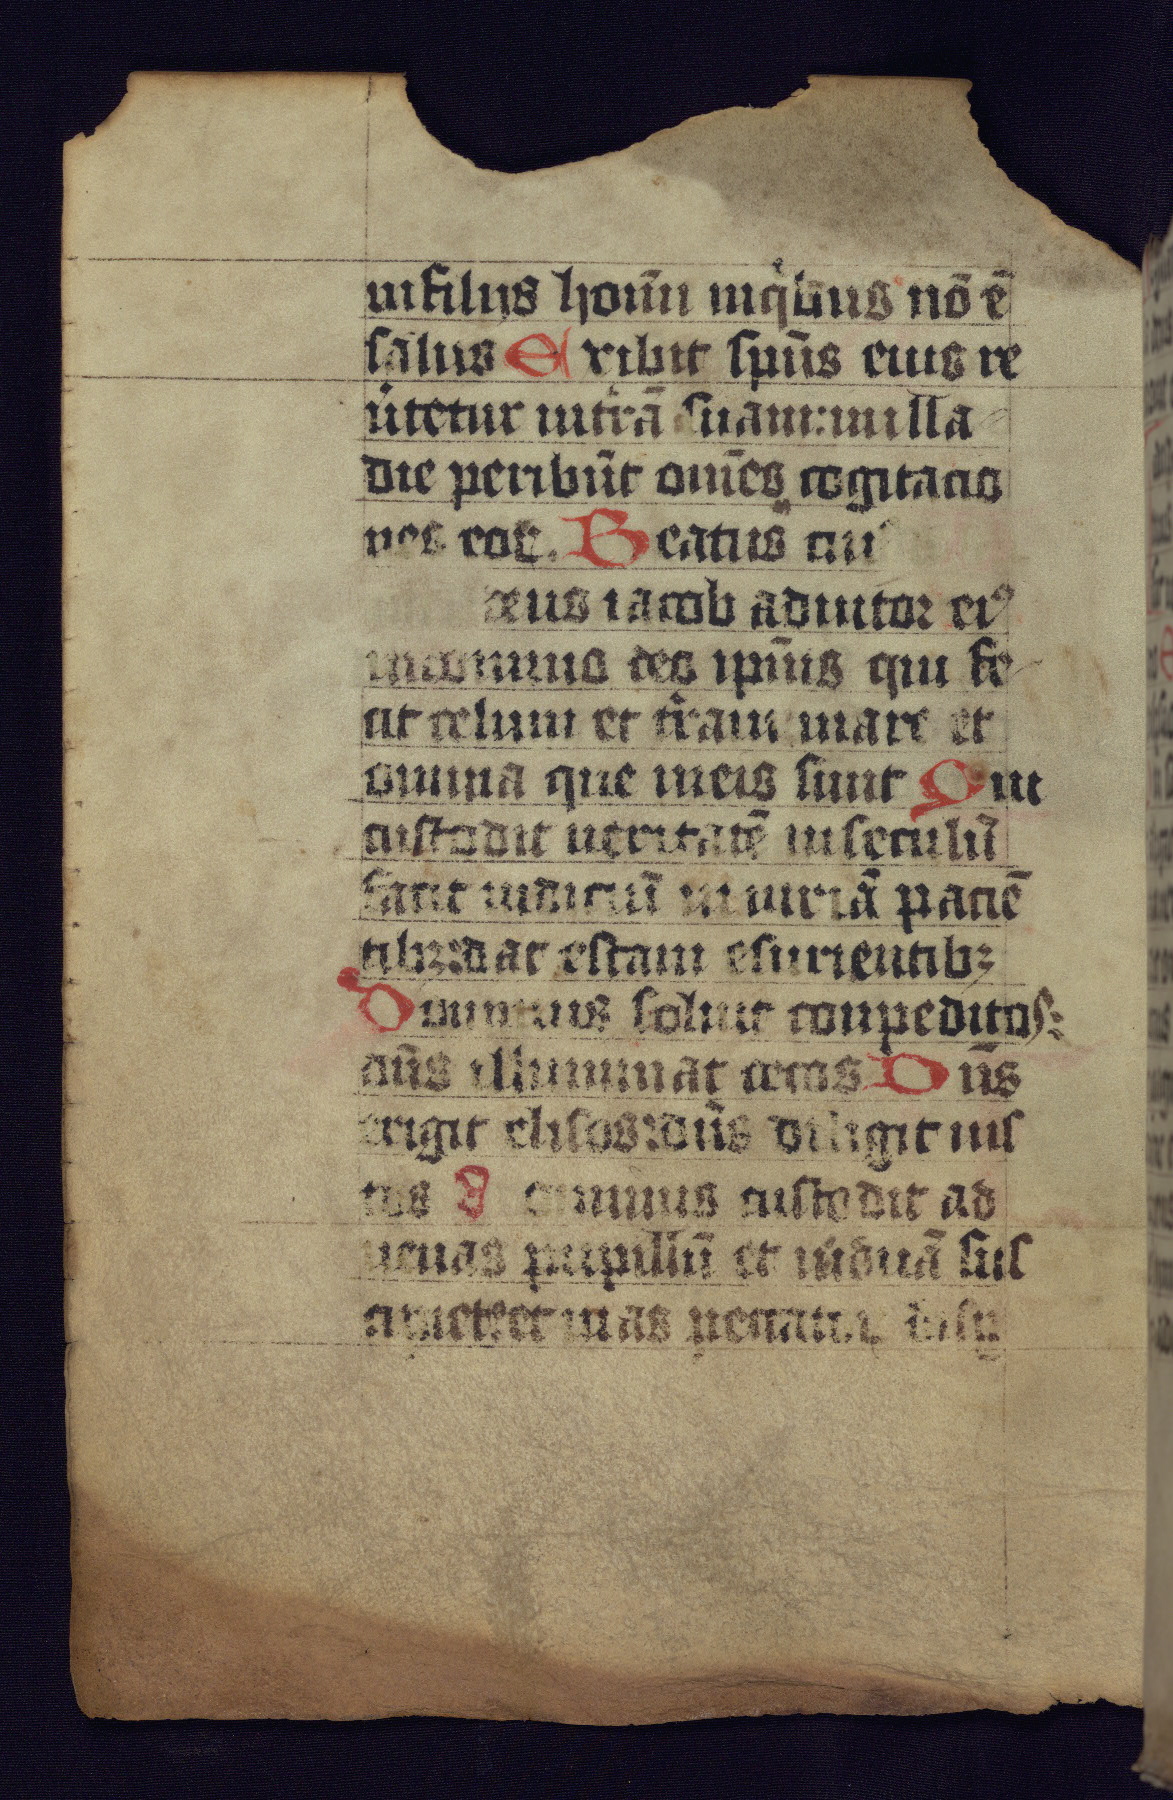 infilijs homı̄n inqͥbus nō ē
salus Exibit sp̄us eius re
u̾tetur intr̄ā suam: inilla
die peribūt om̄es cogitacio
nes eoꝝ. Beatus cui
deus iacob adiutor eiꝰ
incominus dei ip̄ius qui fe
cit celum et tr̄am mare et
omnia que ineis sunt Qui
custodit ueritatē inseculū
facit iudiciū iniuriā paciē
tibꝫ: dat escam esurientibꝫ
Dominus soluit conpeditos:
dn̄s illuminat cecos Dn̄s
erigit elisos: dn̄s diligit ius
tos Dominus custodit ad
uenas pupillū et uiduā sus
cipiet: et uias peccator disp